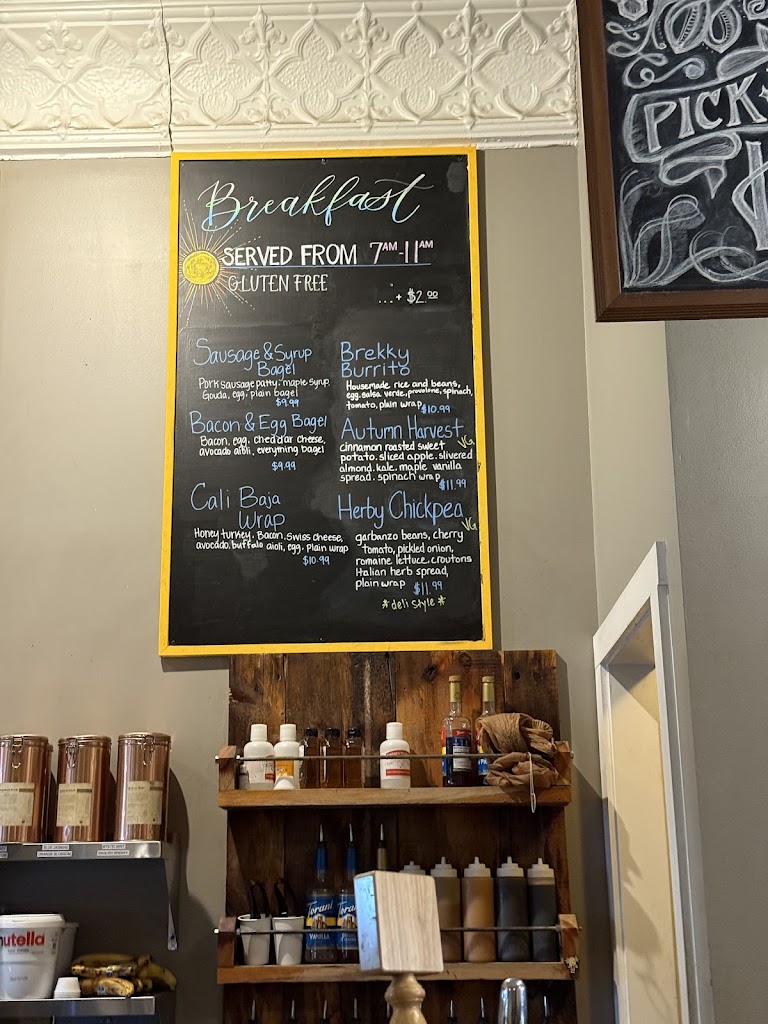 Breakfast
SERVED FROM 7AM-11AM
GLUTEN FREE
...+ $2.00
Sausage & Syrup
Bagel
Pork sausage patty, maple syrup,
Gouda, egg, plain bagel
$9.99
Bacon & Egg Bagel
Bacon, egg, cheddar cheese,
avocado aioli, everything bagel
$9.99
Cali Baja
Wrap
Honey turkey, Bacon, Swiss cheese,
avocado, buffalo aioli, egg, Plain wrap
$10.99
Brekky
Burrito
Housemade rice and beans,
egg, salsa verde, provolone, spinach,
tomato, plain wrap $10.99
Autumn Harvest VG
cinnamon roasted sweet
potato, sliced apple, slivered
almond, kale, maple vanilla
spread, spinach wrap
$11.99
Herby Chickpea VG
garbanzo beans, cherry
tomato, pickled onion,
romaine lettuce, croutons
Italian herb spread,
plain wrap $11.99
*deli style*
PICK
nutella
Torani
VANILLA
Torani